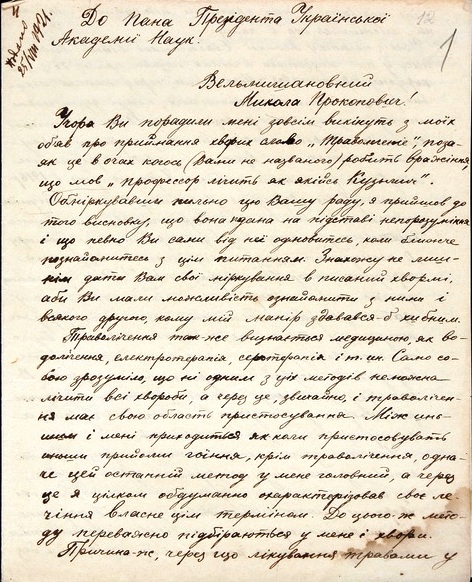 До Пана Президента Української
Академії Наук.
25/VIII 1921.
12
1
Вельмишановний
Микола Прокопович!
Учора Ви порадили мені зовсім викінуть з моїх
обяв про приймання хворих слово „Траволічення", поза-
як це в очах когось (Вами не названого) робить вражіння,
що мов „профессор лічить як якійсь Кузьмич".
Обміркувавши пильно цю Вашу раду, я прийшов до
того висновку, що вона дана на підставі непорозуміння
і що певно Ви сами від неї одмовитесь, коли ближче
познайомитесь з цім питанням. Знаходжу не лиш-
нім дати Вам свої міркування в писаній хвормі,
аби Ви мали можливість ознайомити з ними і
всякого другого, кому мій манір здавався-б хибним.
Траволічення так-же визнається медициною, як во-
долічення, електротерапія, серотерапія і т. ин. Само со-
бою зрозуміло, що ні одним з ціх методів неможна
лічити всі хвороби, а через це, звичайно, і траволічен-
ня має свою область пристосування. Між инь-
шим і мені приходиться як коли пристосовувать
иньши прийоми гоїння, крім траволічення, одна-
че цей останній метод у мене головний, а через
це я цілком обдумано охарактерізовав своє лі-
чення власне цім терміном. До цього-ж мето-
ду переважно підбіраються у мене і хворі.
Причина-ж, через що лікування травами у